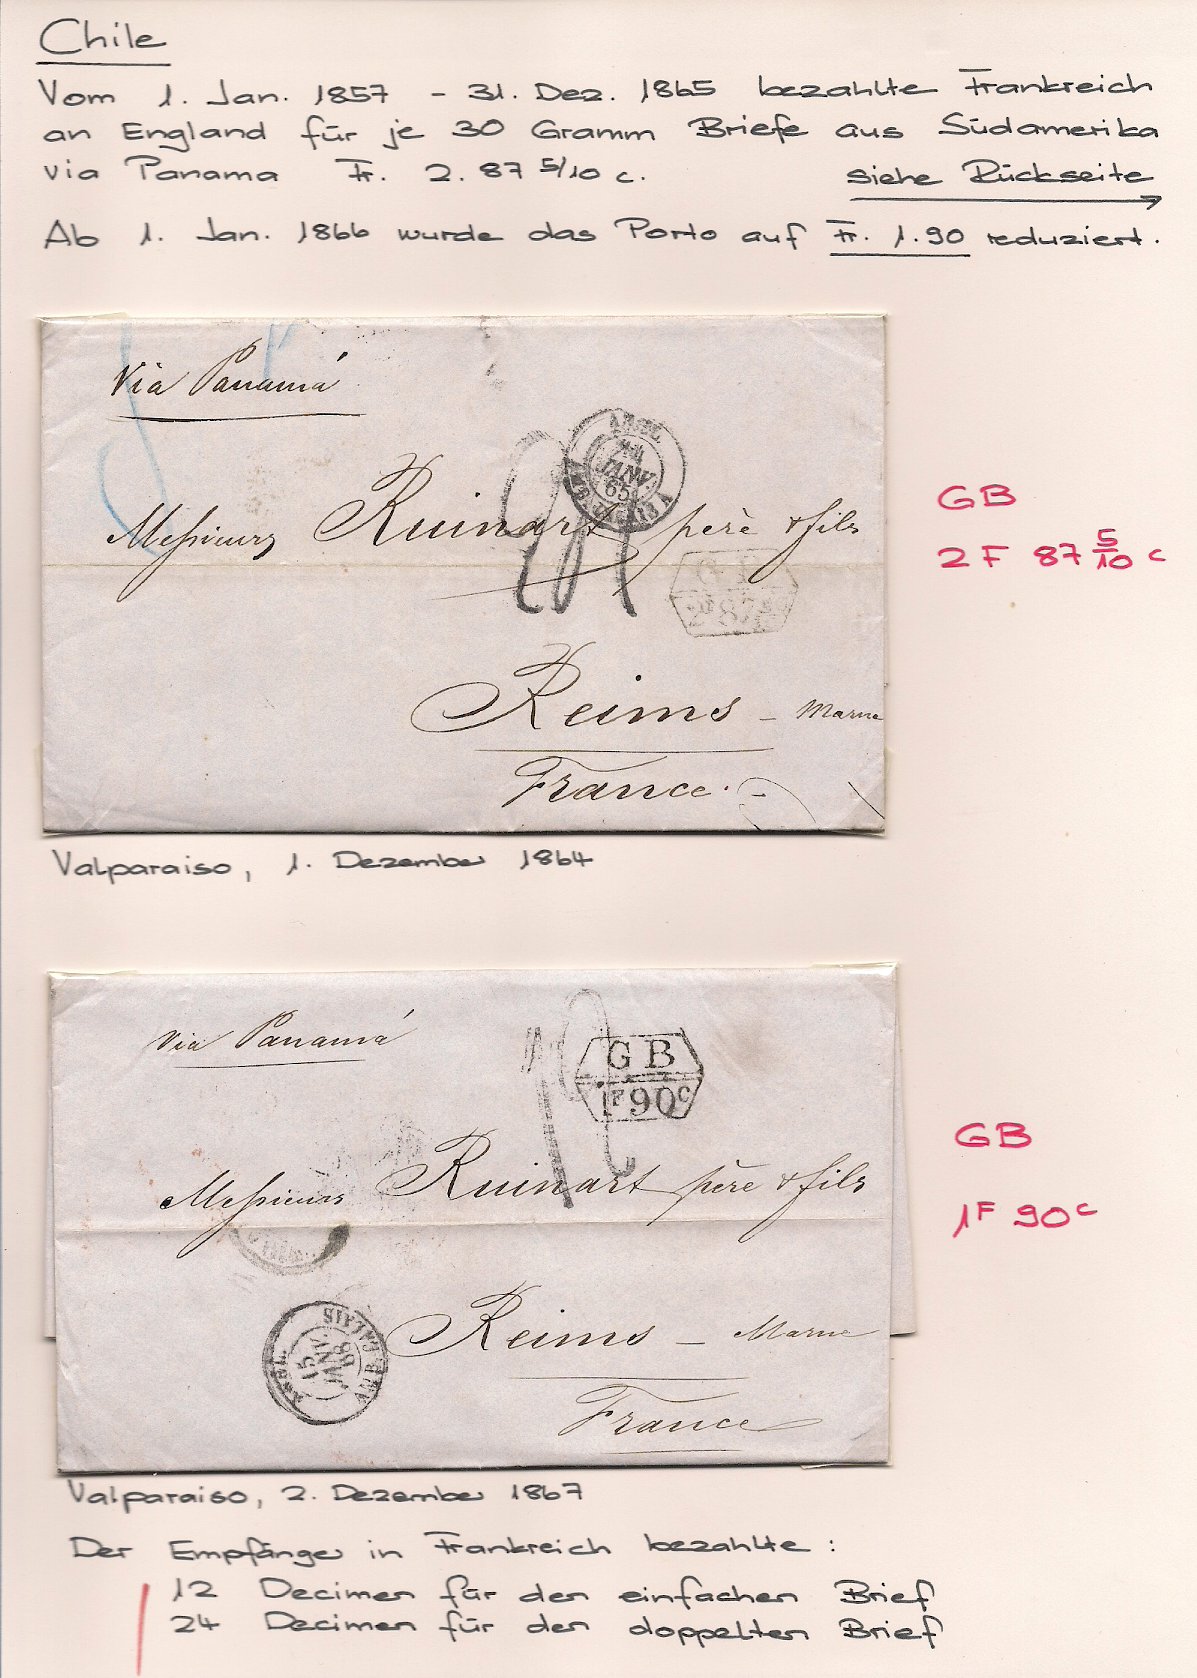 Chile
Vom 1. Jan. 1857 - 31. Dez. 1865 bezahlte Frankreich
an England für je 30 Gramm Briefe aus Südamerika
via Panama Fr. 2.87 5/10 c. siehe Rückseite
Ab 1. Jan. 1866 wurde das Porto auf Fr. 1.90 reduziert.
Via Panamá
ANGL.
JANV.
65
Messieurs Ruinart père & fils
GB
2F 87 5/10 c
GB
2F 87
Reims - Marne
France.
Valparaiso, 1. Dezember 1864
Via Panamá
12
GB
1F 90c
GB
1F 90c
Messieurs Ruinart père & fils
ANGL. AMB. CALAIS
15
JANV.
68
Reims - Marne
France
Valparaiso, 2. Dezember 1867
Der Empfänger in Frankreich bezahlte :
12 Decimen für den einfachen Brief
24 Decimen für den doppelten Brief